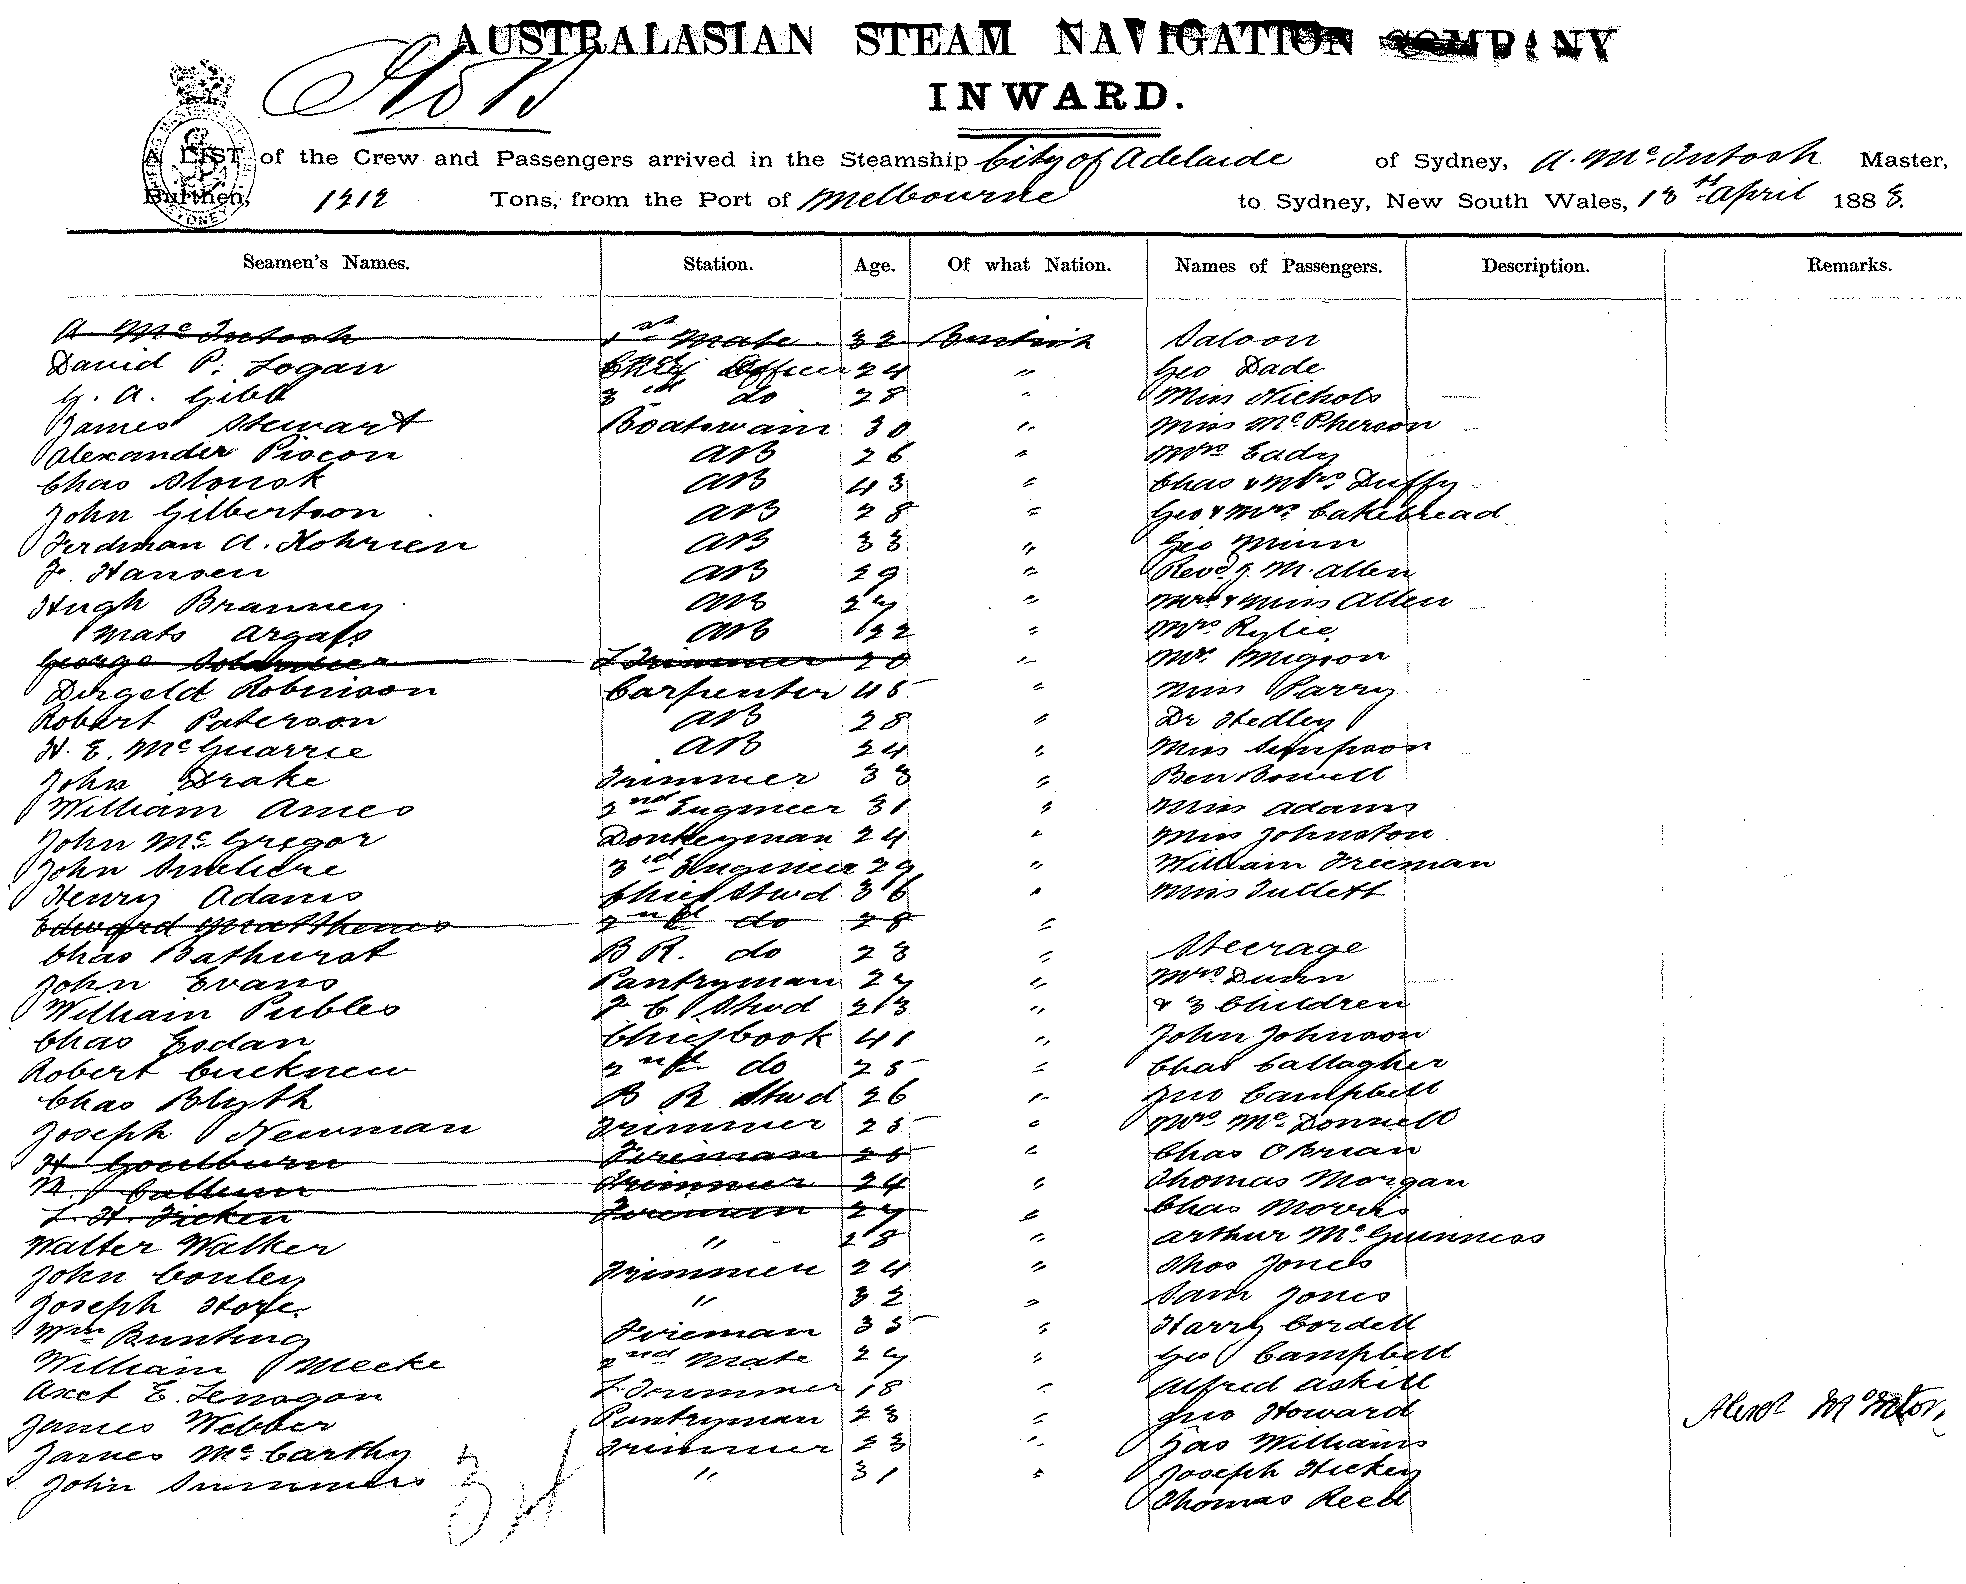 AUSTRALASIAN STEAM NAVIGATION COMPANY
INWARD.
A LIST of the Crew and Passengers arrived in the Steamship City of Adelaide of Sydney, A. McIntosh Master,
Burthen, 1212 Tons, from the Port of Melbourne to Sydney, New South Wales, 13th April 1883.
Seamen's Names. Station. Age. Of what Nation. Names of Passengers. Description. Remarks.
A McIntosh 1st Mate 32 British Saloon
David P. Logan Chief Officer 24 " Geo Dade
G. A. Gibb 3rd do 28 " Miss Nichols
James Stewart Boatswain 30 " Miss McPherson
Alexander Piscon AB 26 " Mrs Eady
Chas AB 43 " Chas & Mrs Duffy
John Gilbertson AB 28 " Geo & Mrs Cakebread
A. AB 33 " Geo Minn
F. Hansen AB 29 " Revd J. M. Allen
Hugh Branney AB 27 " Mrs & Miss Allen
Mats AB 32 " Mrs Rylie
George Trimmer 20 " Mr Migson
Robinson Carpenter 45 " Miss Parry
Robert Paterson AB 28 " Dr Hedley
H. E. McGuarrie AB 24 " Miss Simpson
John Drake Trimmer 33 " Ben Bowell
William Ames 2nd Engineer 31 " Miss Adams
John McGregor Donkeyman 24 " Miss Johnston
John 3rd Engineer 29 " William Freeman
Henry Adams Chief Stwd 36 " Miss Tullett
Edward Matthews 2nd do 28 "
Chas Bathurst B R. do 23 " Steerage
John Evans Pantryman 27 " Mrs Dunn
William Peebles F C Stwd 23 " & 3 Children
Chas Esdan Chief Cook 41 " John Johnson
Robert 2nd do 25 " Chas Callagher
Chas Blyth B R Stwd 26 " Jno Campbell
Joseph Newman Trimmer 25 " Mrs McDonnell
H Goulburn Fireman 25 " Chas OBrian
M. Callum Trimmer 24 " Thomas Morgan
L. H. Ficken Fireman 27 " Chas Morris
Walter Walker " 28 " Arthur McGuinness
John Conley Trimmer 24 " Thos Jones
Joseph Hore " 32 " Sam Jones
Wm Bunting Fireman 35 " Harry Cordell
William Meeke 2nd Mate 27 " Geo Campbell
Axel E. L Trimmer 18 " Alfred Askill
James Webber Pantryman 23 " Jno Howard
James McCarthy Trimmer 23 " Jas Williams
John Summers " 31 " Joseph Hickey
Thomas Reed